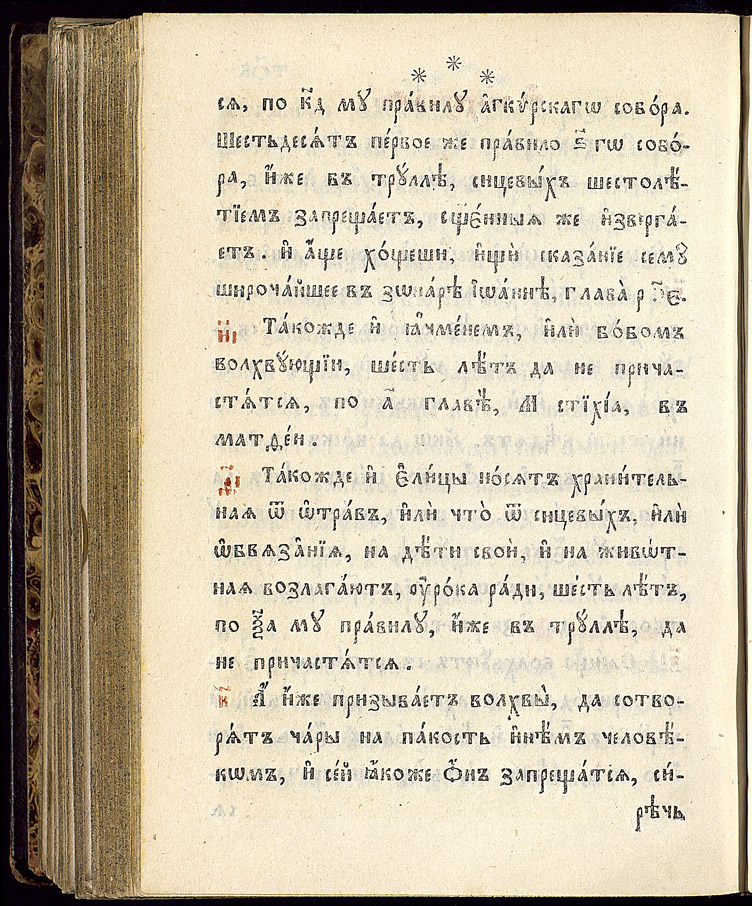 * * *
сѧ, по к҃д мꙋ пра́вилꙋ а҆гкѵ́рскагѡ собо́ра.
Шестьдесѧ́тъ пе́рвое же пра́вило ѕ҃ гѡ собо́-
ра, и҆́же въ трꙋ́ллѣ, сицевы́хъ шестолѣ́-
тїемъ запреща́етъ, сщ҃е́нныѧ же и҆зверга́-
етъ. и҆ а҆́ще хо́щеши, и҆щѝ сказа́нїе семꙋ̀
широча́йшее въ зѡнарѣ̀ і҆ѡа́ннѣ, глава̀ р ч҃е.
н҃і Та́кожде и҆ ꙗ҆чме́немъ, и҆лѝ бо́бомъ
волхвꙋ́ющїи, ше́сть лѣ́тъ да не прича-
стѧ́тсѧ, по а҃ главѣ̀, м стїхі́а, въ
матѳе́и.
Та́кожде и҆ є҆ли́цы но́сѧтъ храни́тель-
наѧ ѿ ѡ҆тра́въ, и҆лѝ что̀ ѿ сицевы́хъ, и҆лѝ
ѡ҆бвѧза́нїѧ, на дѣ́ти своѝ, и҆ на живѡ́т-
наѧ возлага́ютъ, ᲂу҆ро́ка ра́ди, ше́сть лѣ́тъ,
по ѯ҃а мꙋ пра́вилꙋ, и҆́же въ трꙋ́ллѣ, да
не причастѧ́тсѧ.
к҃ А҆ и҆́же призыва́етъ волхвы̀, да сотво-
рѧ́тъ ча́ры на па́кость и҆нѣ́мъ человѣ́-
кѡмъ, и҆ се́й ꙗ҆́коже ѻ҆́нъ запреща́тсѧ, си́-
рѣчь